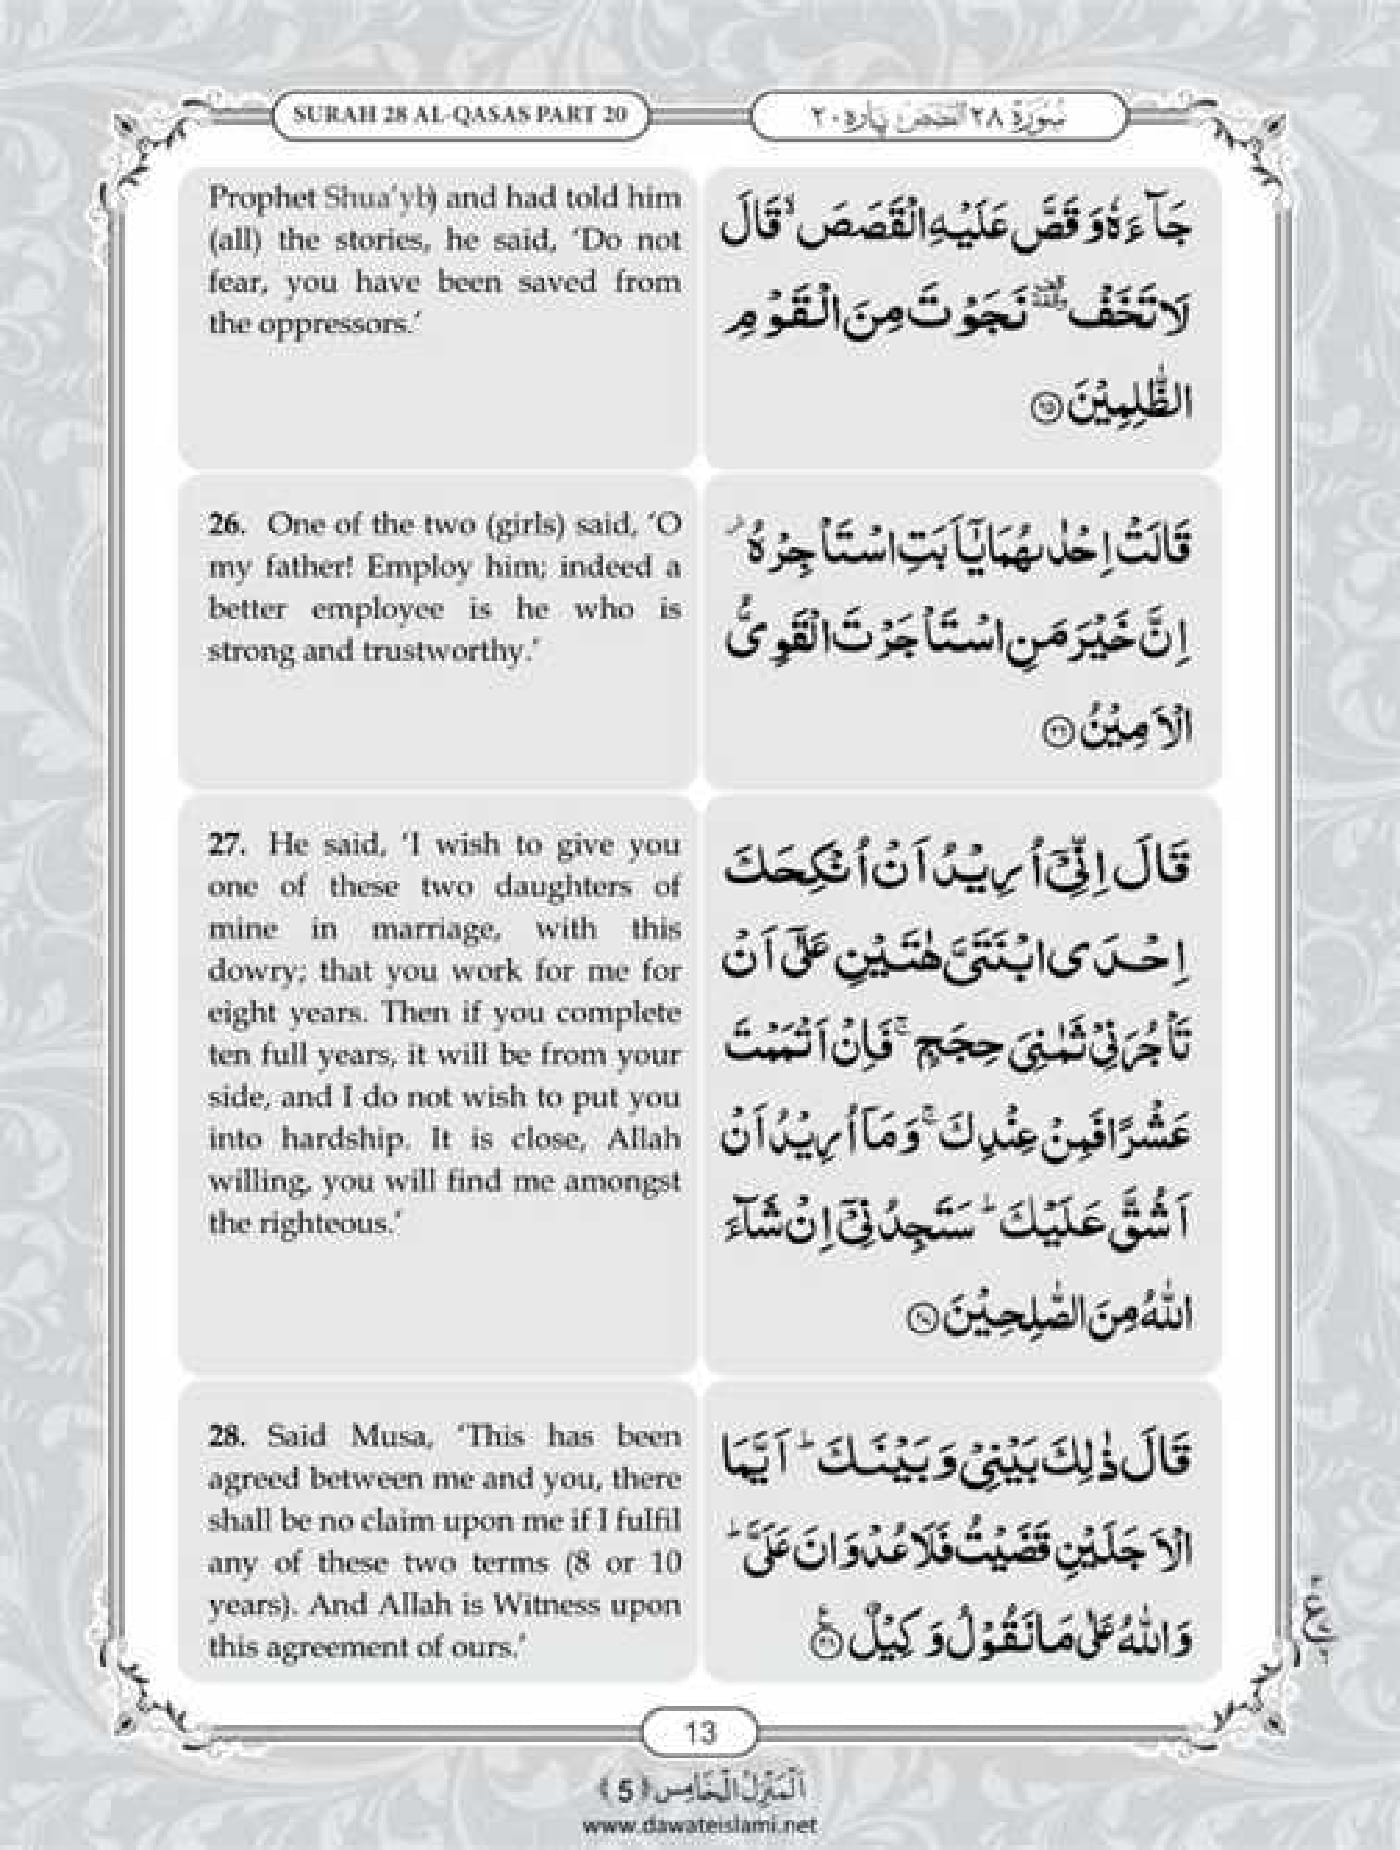 SURAH 28 AL-QASAS PART 20
سُوْرَةُ ٢٨ القصص پاره ٢٠
Prophet Shua'yb) and had told him
(all) the stories, he said, ‘Do not
fear, you have been saved from
the oppressors.’
جَآءَهٗ وَقَصَّ عَلَيْهِ الْقَصَصَ ۙ قَالَ
لَا تَخَفْ ۥۗ نَجَوْتَ مِنَ الْقَوْمِ
الظّٰلِمِيْنَ ﴿۲۵﴾
26. One of the two (girls) said, ‘O
my father! Employ him; indeed a
better employee is he who is
strong and trustworthy.’
قَالَتْ اِحْدٰىهُمَا يٰٓاَبَتِ اسْتَاْجِرْهُ ۫
اِنَّ خَيْرَ مَنِ اسْتَاْجَرْتَ الْقَوِىُّ
الْاَمِيْنُ ﴿۲۶﴾
27. He said, ‘I wish to give you
one of these two daughters of
mine in marriage, with this
dowry; that you work for me for
eight years. Then if you complete
ten full years, it will be from your
side, and I do not wish to put you
into hardship. It is close, Allah
willing, you will find me amongst
the righteous.’
قَالَ اِنِّىْٓ اُرِيْدُ اَنْ اُنْكِحَكَ
اِحْدَى ابْنَتَىَّ هٰتَيْنِ عَلٰٓى اَنْ
تَاْجُرَنِىْ ثَمٰنِىَ حِجَجٍ ۚ فَاِنْ اَتْمَمْتَ
عَشْرًا فَمِنْ عِنْدِكَ ۚ وَمَآ اُرِيْدُ اَنْ
اَشُقَّ عَلَيْكَ ؕ سَتَجِدُنِىْٓ اِنْ شَآءَ
اللّٰهُ مِنَ الصّٰلِحِيْنَ ﴿۲۷﴾
28. Said Musa, ‘This has been
agreed between me and you, there
shall be no claim upon me if I fulfil
any of these two terms (8 or 10
years). And Allah is Witness upon
this agreement of ours.’
قَالَ ذٰلِكَ بَيْنِىْ وَبَيْنَكَ ؕ اَيَّمَا
الْاَجَلَيْنِ قَضَيْتُ فَلَا عُدْوَانَ عَلَىَّ ؕ
وَاللّٰهُ عَلٰى مَا نَقُوْلُ وَكِيْلٌ ﴿۲۸﴾
13
اَلْمَنْزِلُ الْخَامِس ﴿5﴾
www.dawateislami.net